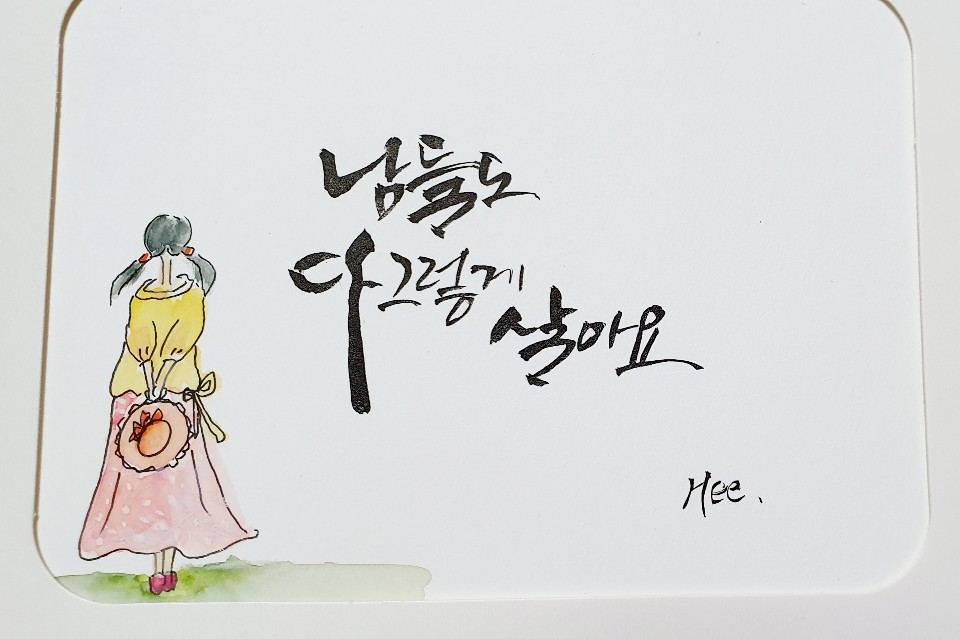 남들도
다 그렇게
살아요
Hee.